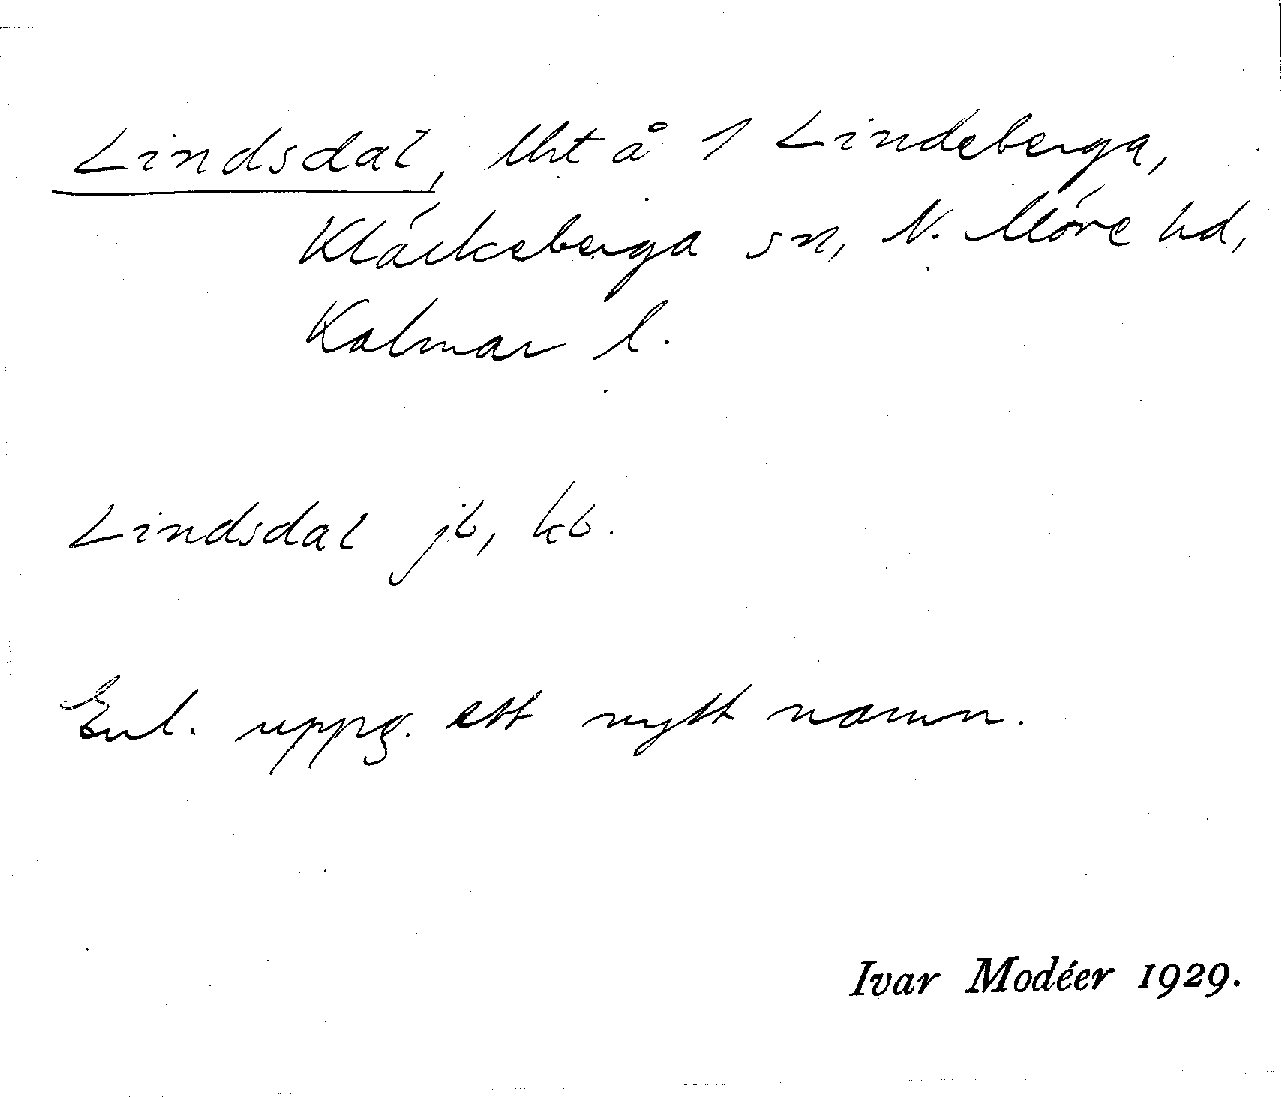 Lindsdal, lht å 1 Lindeberga,
Kläckeberga sn, N. Möre hd,
Kalmar l.
Lindsdal jb, kb.
Enl. uppg. ett nytt namn.
Ivar Modéer 1929.